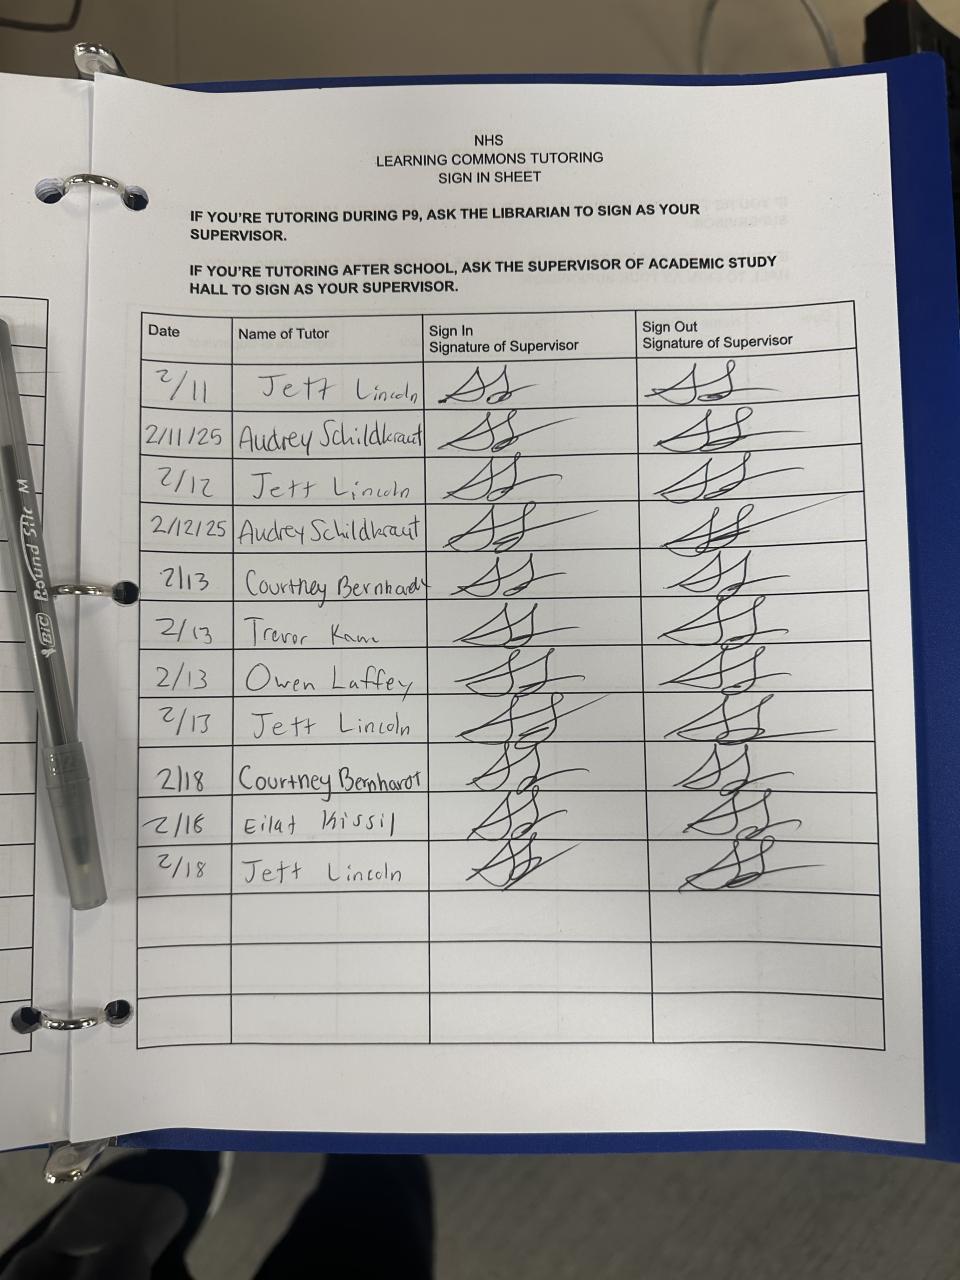 NHS
LEARNING COMMONS TUTORING
SIGN IN SHEET
IF YOU'RE TUTORING DURING P9, ASK THE LIBRARIAN TO SIGN AS YOUR
SUPERVISOR.
IF YOU'RE TUTORING AFTER SCHOOL, ASK THE SUPERVISOR OF ACADEMIC STUDY
HALL TO SIGN AS YOUR SUPERVISOR.
Date Name of Tutor Sign In Signature of Supervisor Sign Out Signature of Supervisor
2/11 Jett Lincoln
2/11/25 Audrey Schildkraut
2/12 Jett Lincoln
2/12/25 Audrey Schildkraut
2/13 Courtney Bernhardt
2/13 Trevor Kam
2/13 Owen Laffey
2/13 Jett Lincoln
2/18 Courtney Bernhardt
2/18 Eilat Kissil
2/18 Jett Lincoln
BIC Round Stic M